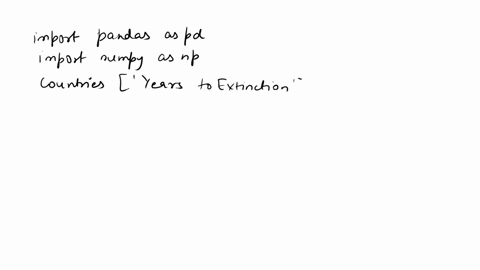 import pandas as pd
import numpy as np
Countries ['Years to Extinction'